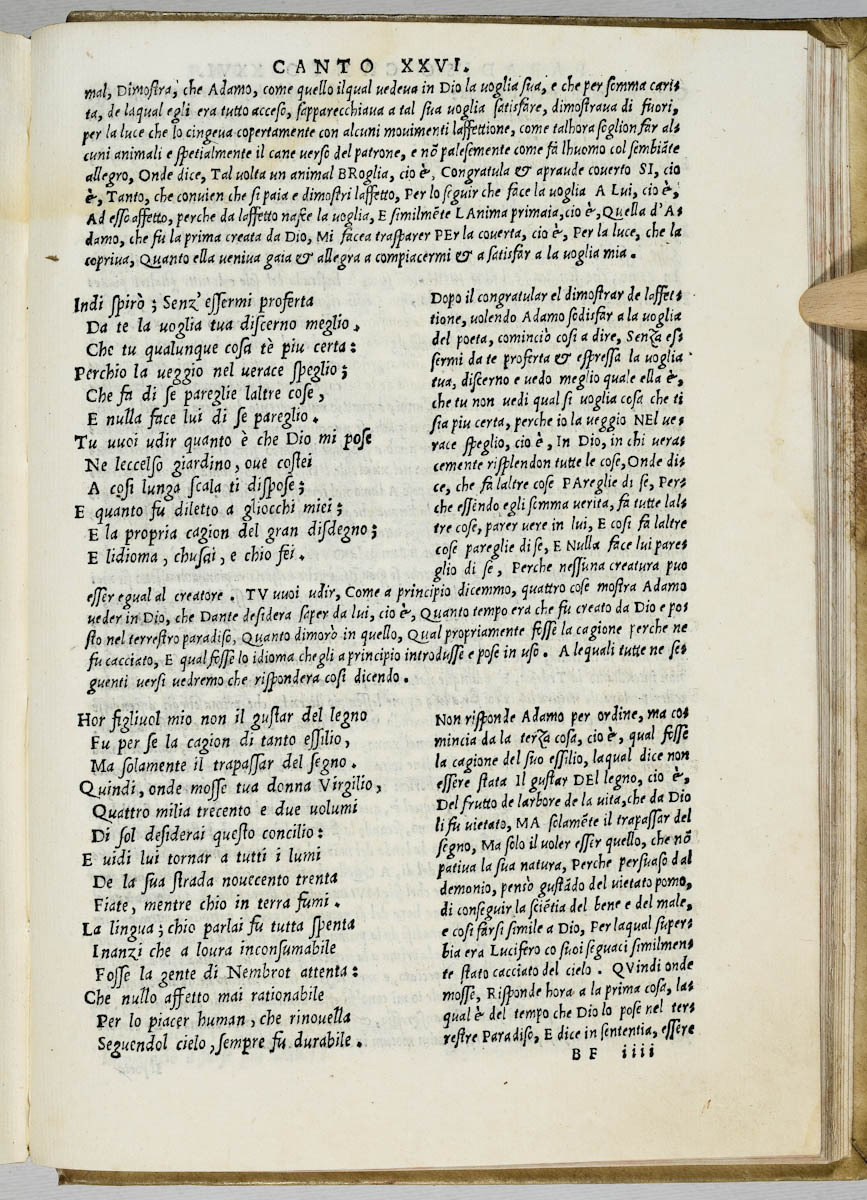 CANTO XXVI.
mal, Dimostra, che Adamo, come quello ilqual vedeva in Dio la voglia sua, e che per somma cari⸗
ta, de laqual egli era tutto acceso, sapparecchiava a tal sua voglia satisfare, dimostrava di fuori,
per la luce che lo cingeva copertamente con alcuni movimenti laffettione, come talhora soglion far al⸗
cuni animali e spetialmente il cane verso del patrone, e nõ palesemente come fa lhuomo col sembiãte
allegro, Onde dice, Tal volta un animal BRoglia, cio è, Congratula & apraude coverto SI, cio
è, Tanto, che convien che si paia e dimostri laffetto, Per lo seguir che face la voglia A Lui, cio è,
Ad esso affetto, perche da laffetto nasce la voglia, E similmẽte LAnima primaia, cio è, Quella d'A⸗
damo, che fu la prima creata da Dio, Mi facea trasparer PEr la coverta, cio è, Per la luce, che la
copriva, Quanto ella veniva gaia & allegra a compiacermi & a satisfar a la voglia mia.
Indi spirò; Senz'essermi proferta
Da te la voglia tua discerno meglio,
Che tu qualunque cosa tè piu certa:
Perchio la veggio nel verace speglio;
Che fa di se pareglie laltre cose,
E nulla face lui di se pareglio.
Tu vuoi udir quanto è che Dio mi pose
Ne leccelso giardino, ove costei
A cosi lunga scala ti dispose;
E quanto fu diletto a gliocchi miei;
E la propria cagion del gran disdegno;
E lidioma, chusai, e chio fei.
Dopo il congratular el dimostrar de laffet⸗
tione, volendo Adamo sodisfar a la voglia
del poeta, cominciò cosi a dire, Senza es⸗
sermi da te proferta & espressa la voglia
tua, discerno e vedo meglio quale ella è,
che tu non vedi qual si voglia cosa che ti
sia piu certa, perche io la veggio NEl ve⸗
race speglio, cio è, In Dio, in chi vera⸗
cemente risplendon tutte le cose, Onde di⸗
ce, che fa laltre cose PAreglie di se, Per⸗
che essendo egli somma verita, fa tutte lal⸗
tre cose, parer vere in lui, E cosi fa laltre
cose pareglie di se, E Nulla face lui pare⸗
glio di se, Perche nessuna creatura puo
esser egual al creatore. TV vuoi udir, Come a principio dicemmo, quattro cose mostra Adamo
veder in Dio, che Dante desidera saper da lui, cio è, Quanto tempo era che fu creato da Dio e po⸗
sto nel terrestro paradiso, Quanto dimorò in quello, Qual propriamente fosse la cagione perche ne
fu cacciato, E qual fosse lo idioma chegli a principio introdusse e pose in uso. A lequali tutte ne se⸗
guenti versi vedremo che rispondera cosi dicendo.
Hor figliuol mio non il gustar del legno
Fu per se la cagion di tanto essilio,
Ma solamente il trapassar del segno.
Quindi, onde mosse tua donna Virgilio,
Quattro milia trecento e due volumi
Di sol desiderai questo concilio:
E vidi lui tornar a tutti i lumi
De la sua strada novecento trenta
Fiate, mentre chio in terra fumi.
La lingua; chio parlai fu tutta spenta
Inanzi che a lovra inconsumabile
Fosse la gente di Nembrot attenta:
Che nullo affetto mai rationabile
Per lo piacer human, che rinovella
Seguendol cielo, sempre fu durabile.
Non risponde Adamo per ordine, ma co⸗
mincia da la terza cosa, cio è, qual fosse
la cagione del suo essilio, laqual dice non
essere stata Il gustar DEl legno, cio è,
Del frutto de larbore de la vita, che da Dio
li fu vietato, MA solamẽte il trapassar del
segno, Ma solo il voler esser quello, che nõ
pativa la sua natura, Perche persuaso dal
demonio, pensò gustãdo del vietato pomo,
di conseguir la sciẽtia del bene e del male,
e cosi farsi simile a Dio, Per laqual super⸗
bia era Lucifero co suoi seguaci similmen⸗
te stato cacciato del cielo. QVindi onde
mosse, Risponde hora a la prima cosa, la⸗
qual è del tempo che Dio lo pose nel ter⸗
restre Paradiso, E dice in sententia, essere
BF iiii